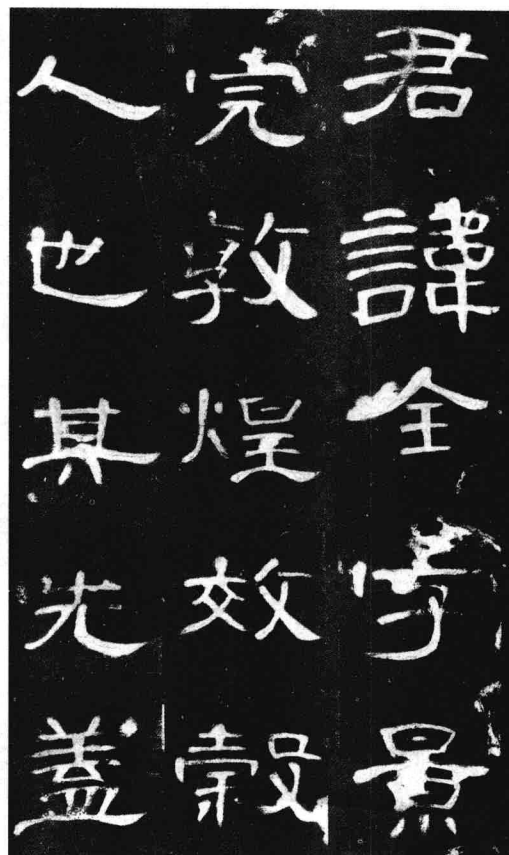 君諱全字景
完敦煌效穀
人也其先蓋